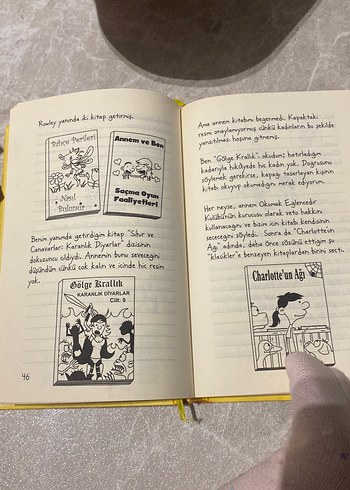 Rowley yanında iki kitap getirmiş.
Bahçe Perileri
Nasıl
Bulunur
Annem ve Ben
Saçma Oyun
Faaliyetleri
Benim yanımda getirdiğim kitap "Sihir ve
Canavarlar: Karanlık Diyarlar" dizisinin
dokuzuncu cildiydi. Annemin bunu seveceğini
düşündüm çünkü çok kalın ve içinde hiç resim
yok.
Gölge Krallık
KARANLIK DİYARLAR
Cilt: 9
46
Ama annem kitabımı beğenmedi. Kapaktaki
resmi onaylamıyormuş çünkü kadınların bu şekilde
yansıtılması hoşuna gitmemiş.
Ben "Gölge Krallık"ı okudum; hatırladığım
kadarıyla hikâyede hiç kadın yok. Doğrusunu
söylemek gerekirse, kapağı tasarlayan kişinin
kitabı okuyup okumadığını merak ediyorum.
Her neyse, annem Okumak Eğlencedir
Kulübünün kurucusu olarak veto hakkını
kullanacağını ve bizim için kitabı kendisinin
seçeceğini söyledi. Sonra da "Charlotte'un
Ağı" adında, daha önce sözünü ettiğim şu
"klasikler"e benzeyen kitaplardan birini seçti.
Charlotte'un Ağı